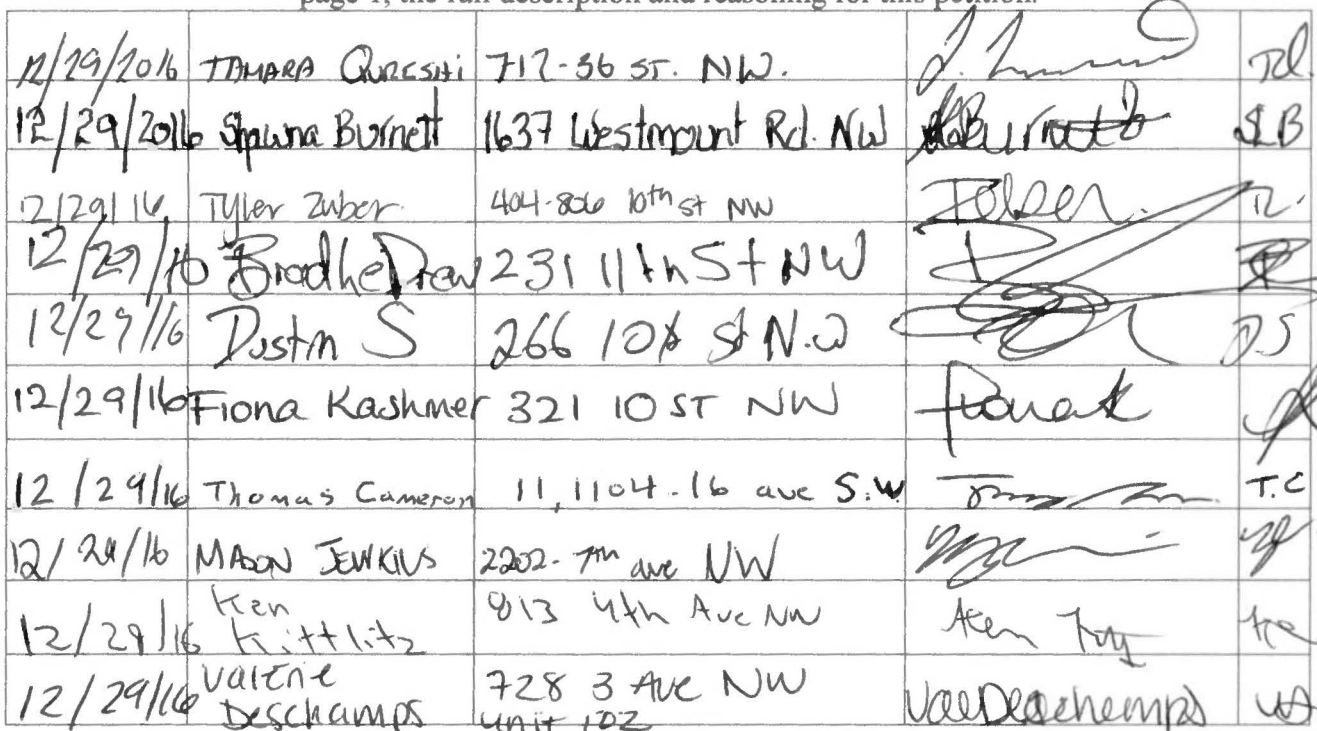 page 1, the full description and reasoning for this petition.
12/29/2016 TAMARA QURESHI 717-36 ST. NW. T.Q.
12/29/2016 Shawna Burnett 1637 Westmount Rd. NW SBurnett SB
12/29/16 Tyler Zuber 404-806 10th st NW
12/29/16 231 11th St NW
12/29/16 Dustin S 266 10 St N.W DS
12/29/16 Fiona Kashmer 321 10 ST NW FionaK
12/29/16 Thomas Cameron 11, 1104-16 ave S.W T.C
12/29/16 MASON JENKINS 2202-7th ave NW
12/29/16 Ken Kittlitz 813 4th Ave NW Ken
12/29/16 Valerie Deschamps 728 3 Ave NW Unit 102 ValDeschamps